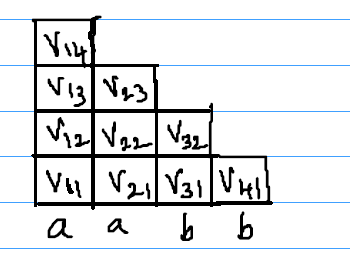 V14
V13 V23
V12 V22 V32
V11 V21 V31 V41
a a b b